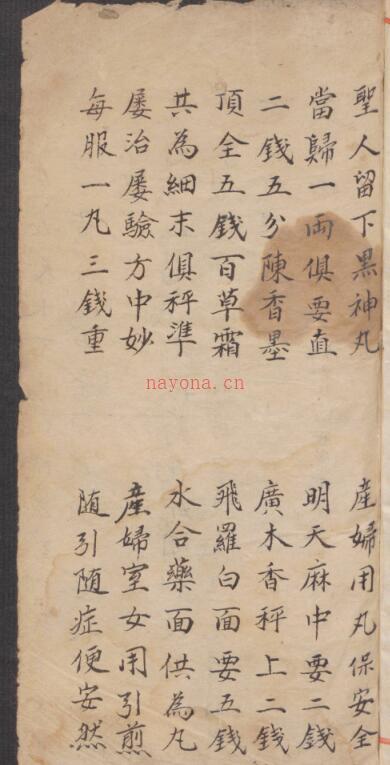 聖人留下黑神丸 產婦用丸保安全
當歸一兩俱要直 明天麻中要二錢
二錢五分陳香墨 廣木香秤上二錢
頂全五錢百草霜 飛羅白面要五錢
共為細末俱秤準 水合藥面供為丸
屢治屢驗方中妙 產婦室女用引煎
每服一丸三錢重 随引随症便安然
nayona.cn